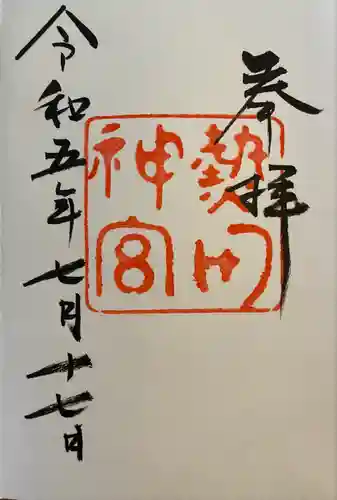 奉拝
熱田
神宮
令和五年七月十七日